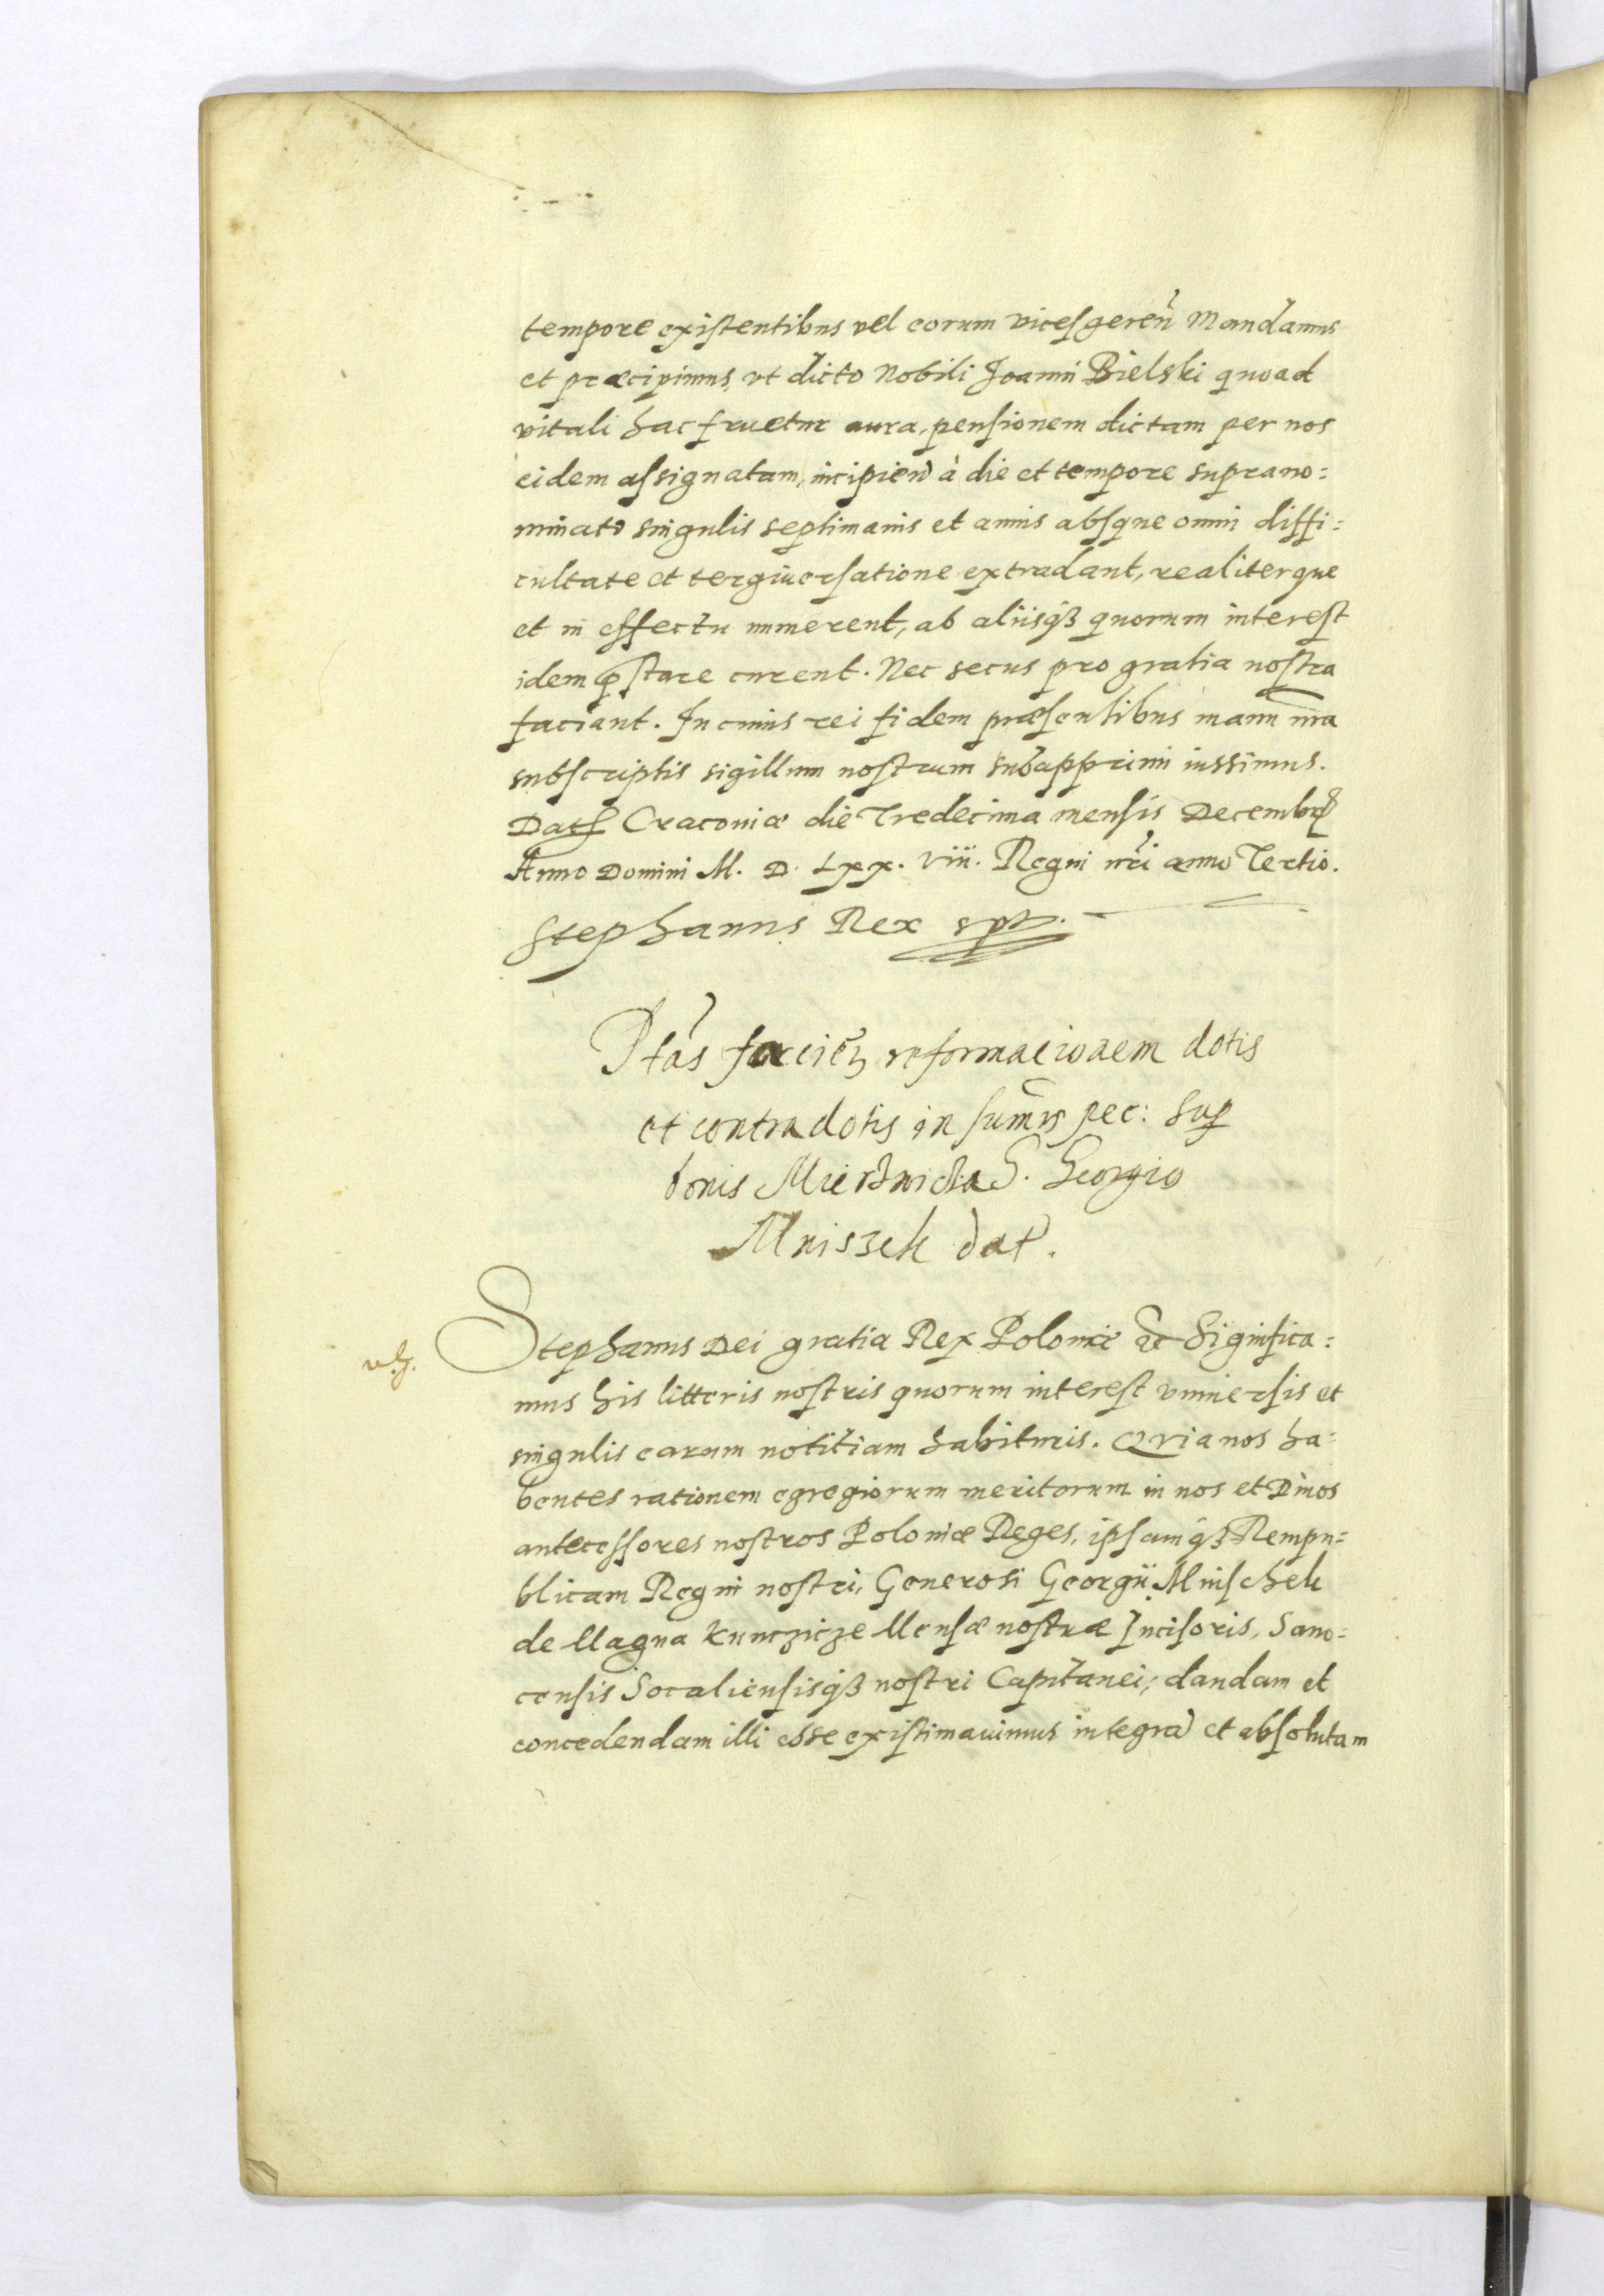 tempore existentibus vel eorum vicesgeren̄ Mandamus
et præcipimus, vt dicto Nobili Joanni Bielski quoad
vitali hac fruetur aura, pensionem dictam per nos
eidem assignatam, incipień à die et tempore suprano=
minato singulis septimanis et annis absque omni diffi=
cultate et tergiuersatione extradant, realiterque
et in effectu numerent, ab aliisqʒ quorum interest
idem p̄stare curent. Nec secus pro gratia nostra
faciant. In cuius rei fidem præsentibus manu nr̄a
subscriptis sigillum nostrum subapprimi iussimus.
Dat Cracouiæ die Tredecima mensis Decembr
Anno Domini M. D. Lxx. viii. Regni nr̄i anno Tertio.
Stephanus Rex spt.
Ptās facień reformacioaem dotis
et contradotis in sum̄is pec: sup
bonis G. Georgio
Mniszek dat.
Stephanus Dei gratia Rex Poloniæ ꝛc Significa=
mus his litteris nostris quorum interest vniuersis et
singulis earum notitiam habituris. Qvia nos ha=
bentes rationem egregiorum meritorum in nos et Diuos
antecessores nostros Poloniæ Reges, ipsamqʒ Rempu=
blicam Regni nostri, Generosi Georgii Mnischek
de Magna Kunczicze Mensæ nostræ Incisoris, Sano=
censis Socaliensisqʒ nostri Capitanei, dandam et
concedendam illi esse existimauimus integrā et absolutam